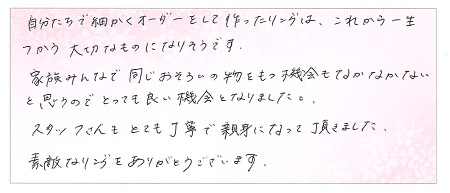 自分たちで細かくオーダーをして作ったリングは、これから一生
つかう大切なものになりそうです。
家族みんなで同じおそろいの物をもつ機会もなかなかない
と思うのでとっても良い機会となりました。
スタッフさんもとても丁寧で親身になって頂きました。
素敵なリングをありがとうございます。